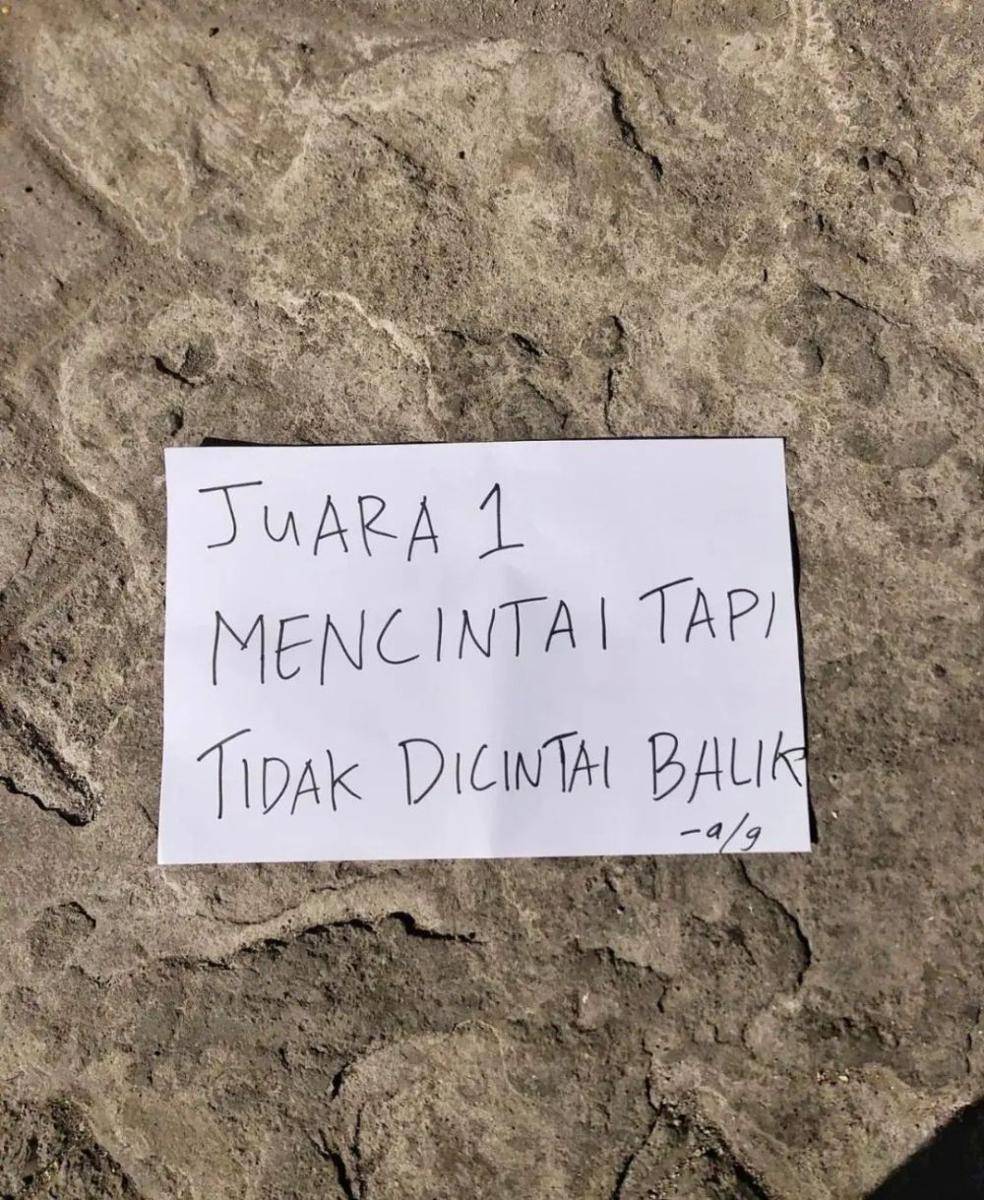 JUARA 1
MENCINTAI TAPI
TIDAK DICINTAI BALIK
-a/g